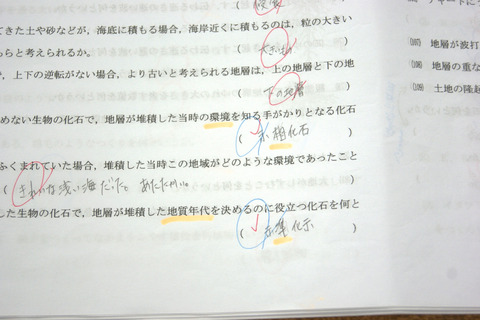 てきた土や砂などが，海底に積もる場合，海岸近くに積もるのは，粒の大きい
らと考えられるか。
大きいほう
，上下の逆転がない場合，より古いと考えられる地層は，上の地層と下の地
下の地層
めない生物の化石で，地層が堆積した当時の環境を知る手がかりとなる化石
示相化石
ふくまれていた場合，堆積した当時この地域がどのような環境であったこと
きれいな浅い海だった。あたたかい。
した生物の化石で，地層が堆積した地質年代を決めるのに役立つ化石を何と
示準化示
チャートに
(107) 地層が波打
(108) 地層の重な
(109) 土地の隆起